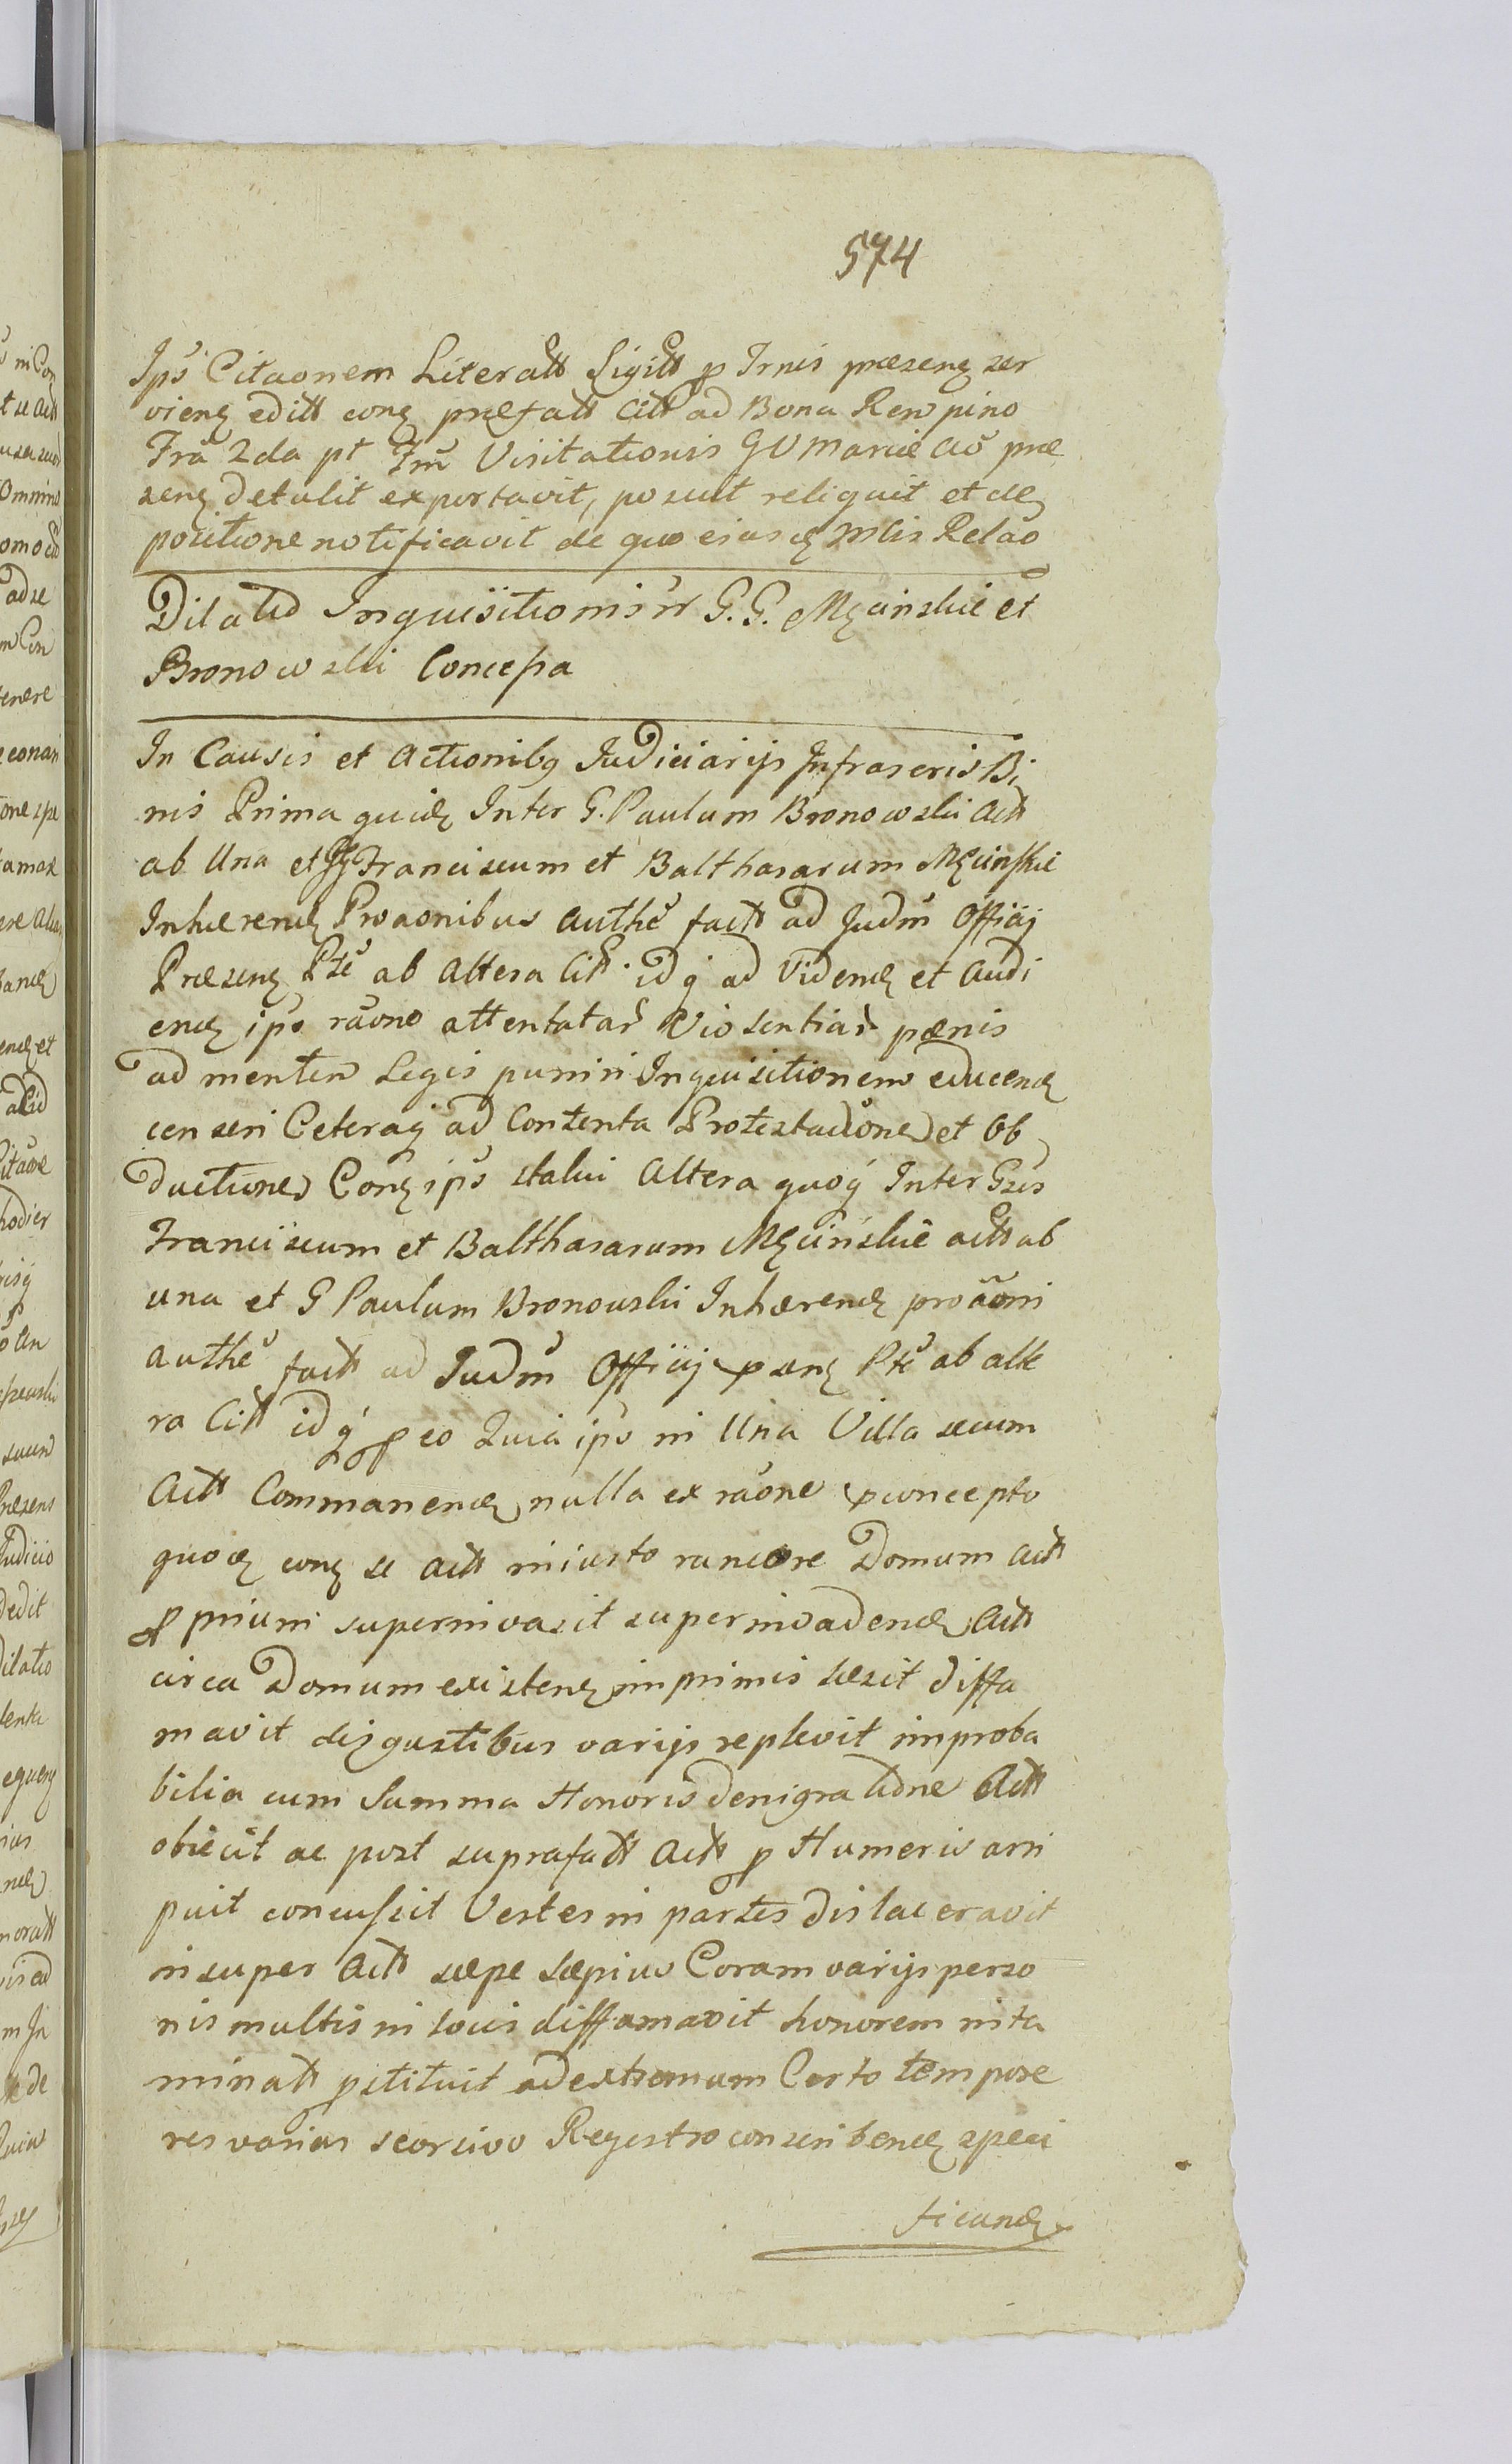 574
Ips Citaonem Literatt Sigitt p Trnis præsenꝫ ser
vienꝫ editt conꝫ præfatt Citt ad Bona Rempino
Fra 2da pt Fm Visitationis GV Mariæ Aō præ
senꝫ detulit exportavit, posuit reliquit et de
positione notificavit de quo eiusdꝫ Mlis Relao
Dilatio Inquisitionis nr G.G. Męcinskie et
Bronowski Concessa
In Causis et Actionibꝫ Judiciarijs Infrascris Bi
nis Prima quidꝫ Inter G. Paulum Bronowski Actt
ab Una et GG Franciscum et Balthasarum Męcinskie
Inhærendꝫ Proaonibus authe factt ad Judm Officij
Præsenꝫ Pte ab Altera Citt idq ad Videndꝫ et Audi
endꝫ ips raone attentatar Violentiar pænis
ad mentem Legis puniri Inquisitionem educendꝫ
censeri Ceteraq ad Contenta Protestationē et Ob
ductiones Conꝫ ips statui Altera quoq Inter Gsos
Franciscum et Balthasarum Męcinskie actt ab
una et G Paulum Bronowski Inhærendꝫ proaoni
authe factt ad Judm Officij psenꝫ Pte ab alte
ra Citt idq p eo Quia ips in Una Villa secum
Actt Commanendꝫ nulla ex raone pconcepto
quodꝫ conꝫ se actt iniusto rancore Domum actt
ppriam superinvasit superinvadendꝫ Actt
circa Domum existenꝫ imprimis læsit diffa
mavit disgustibus varijs replevit improba
bilia cum Summa Honoris denigratione Actt
obiecit ac post suprafatt Actt p Humeris arri
puit concussit Vestes in partes dislaceravit
insuper Actt sæpe sæpius Coram varijs perso
nis multis in locis diffamavit honorem inta
minatt pstituit ad extremum Certo tempore
res varias seorsivo Regestro conscribendꝫ speci
ficandꝫ